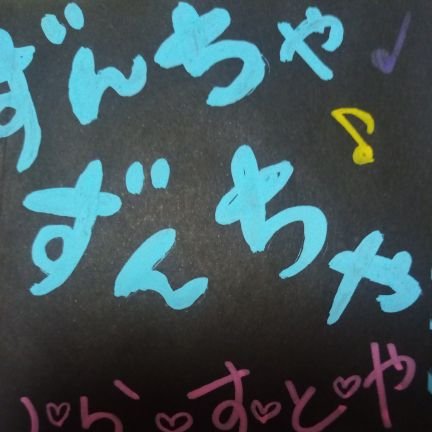 ずんちゃ♪
♪
ずんちゃ
♡ら♡す♡と♡や